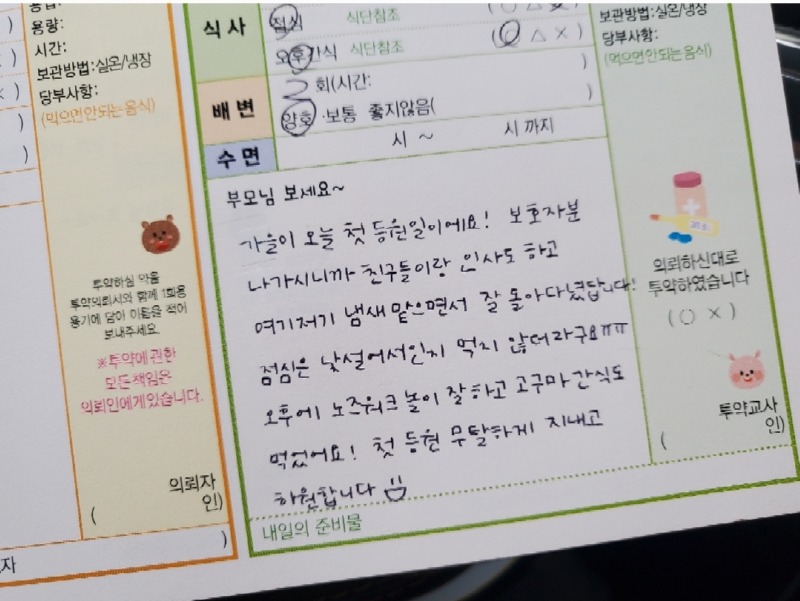 용법:
용량:
시간:
보관방법:실온/냉장
당부사항:
(먹으면안되는음식)
투약하실 약을
투약의뢰서와 함께 1회용
용기에 담아 이름을 적어
보내주세요.
※투약에 관한
모든책임은
의뢰인에게있습니다.
의뢰자
( 인)
식 사
점심 식단참조 ( ○ △ X )
오후간식 식단참조 ( ○ △ X )
배 변
2 회(시간: )
양호 ·보통 좋지않음( )
수 면
시 ~ 시 까지
부모님 보세요~
가을이 오늘 첫 등원일이에요! 보호자분
나가시니까 친구들이랑 인사도 하고
여기저기 냄새 맡으면서 잘 돌아다녔답니다!
점심은 낯설어서인지 먹지 않더라구요ㅠㅠ
오후에 노즈워크 놀이 잘하고 고구마 간식도
먹었어요! 첫 등원 무탈하게 지내고
하원합니다
내일의 준비물
보관방법:실온/냉장
당부사항:
(먹으면안되는음식)
의뢰하신대로
투약하였습니다
( ○ X )
투약교사
( 인)